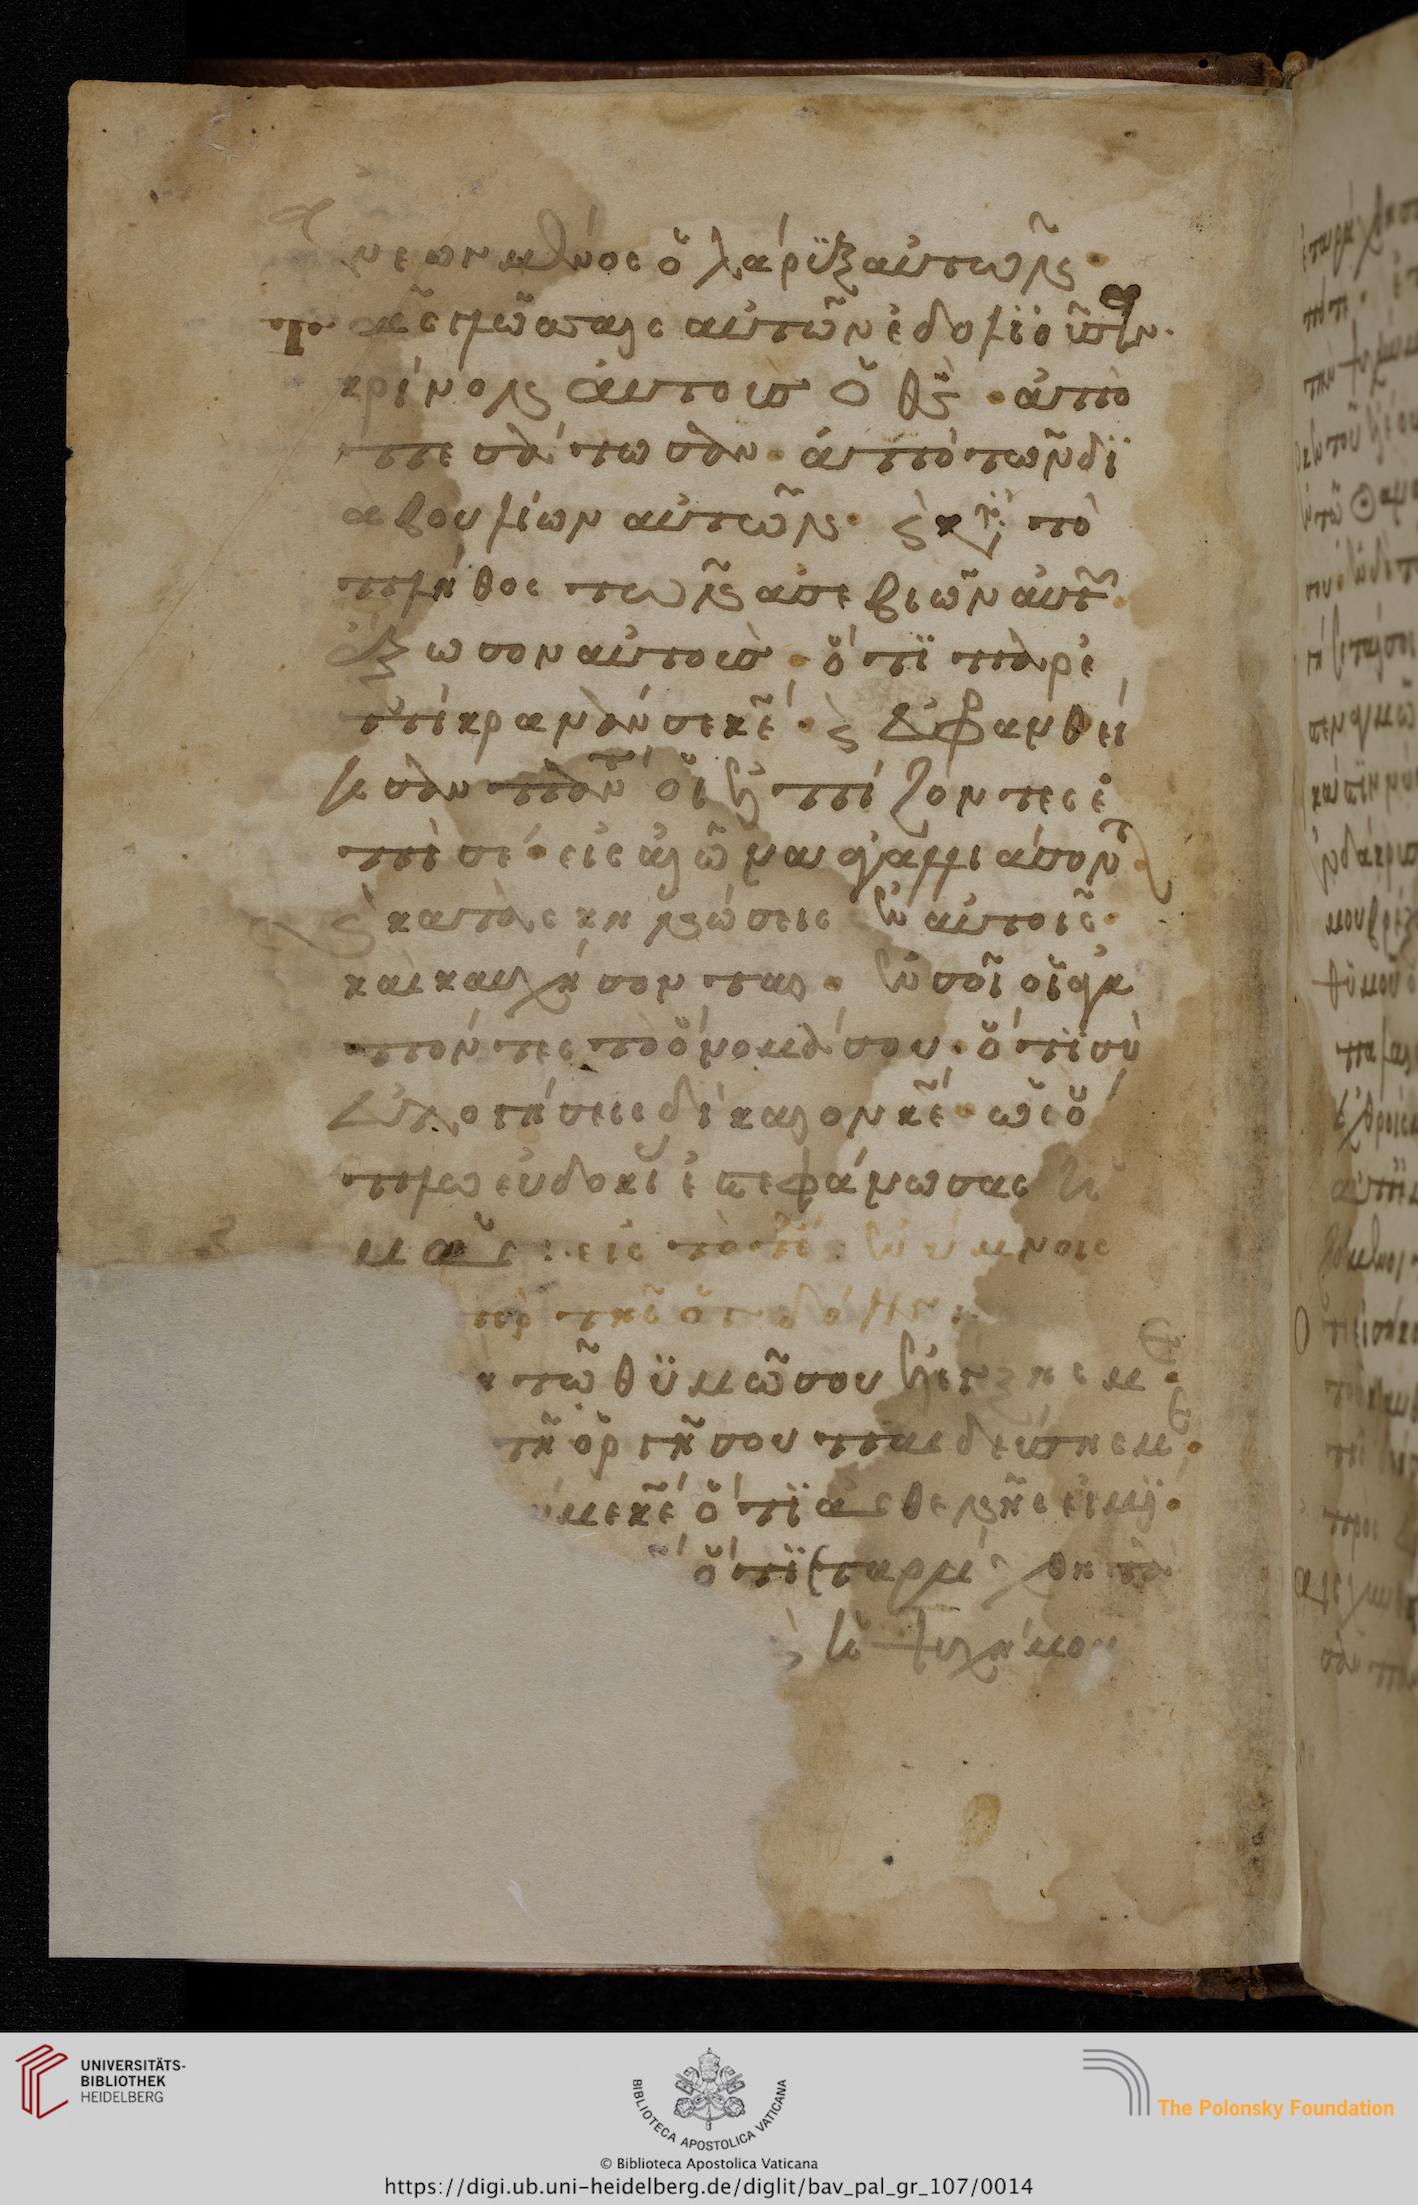 νεωγμένος ὁ λάρυξ αὐτῶν·
ταῖς γλώσσαις αὐτῶν ἐδολιοῦσαν·
κρίνον αὐτοὺς ὁ θς· ἀπο
πεσάτωσαν· ἀπὸ τῶν δι
αβουλίων αὐτῶν· κὶ κατὰ τὸ
πλῆθος τῶν ἀσεβιῶν αὐτ
ἔξωσον αὐτοὺς· ὅτι παρε
πίκρανάν σε κε· κὶ εὐφρανθεί
ησαν πάντ οἱ ἐλπίζοντες ἐ
πὶ σέ· εἰς αἰῶνα ἀγαλλιάσοντ
κὶ κατασκηνώσεις ἐν αὐτοῖς·
καὶ καυχήσονται· ἐν σοὶ οἱ ἀγα
πόντες τὸ ὄνομά σου· ὅτι σὺ
εὐλογήσεις δίκαιον κε· ὡς ὅ
πλω εὐδοκι ἐστεφάνωσας ἡ
μᾶς: εἰς τὸ τέ· ἐν ύμνοις
ὑπὲρ τῆς ὀγδόης:
τῶ θυμῶ σου ἐλεγξης με·
τῆ ὀργῆ σου παιδεύσης με·
με κε ὅτι ἀσθενής εἰμι·
ὅτι ἐταράχθη τὰ
κὶ ἡ ψυχή μου
UNIVERSITÄTS-
BIBLIOTHEK
HEIDELBERG
BIBLIOTECA APOSTOLICA VATICANA
The Polonsky Foundation
© Biblioteca Apostolica Vaticana
https://digi.ub.uni-heidelberg.de/diglit/bav_pal_gr_107/0014